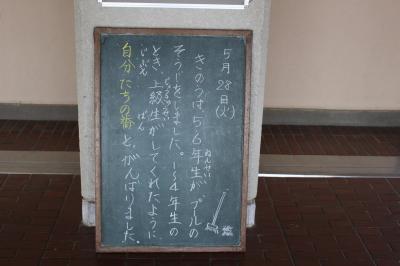 5月28日(火)
きのうは5、6年生が プールの
そうじをしました。1〜4年生の
とき、上級生がしてくれたように
自分たちの番と、がんばりました。
ねんせい
じょうきゅうせい
じぶん
ばん